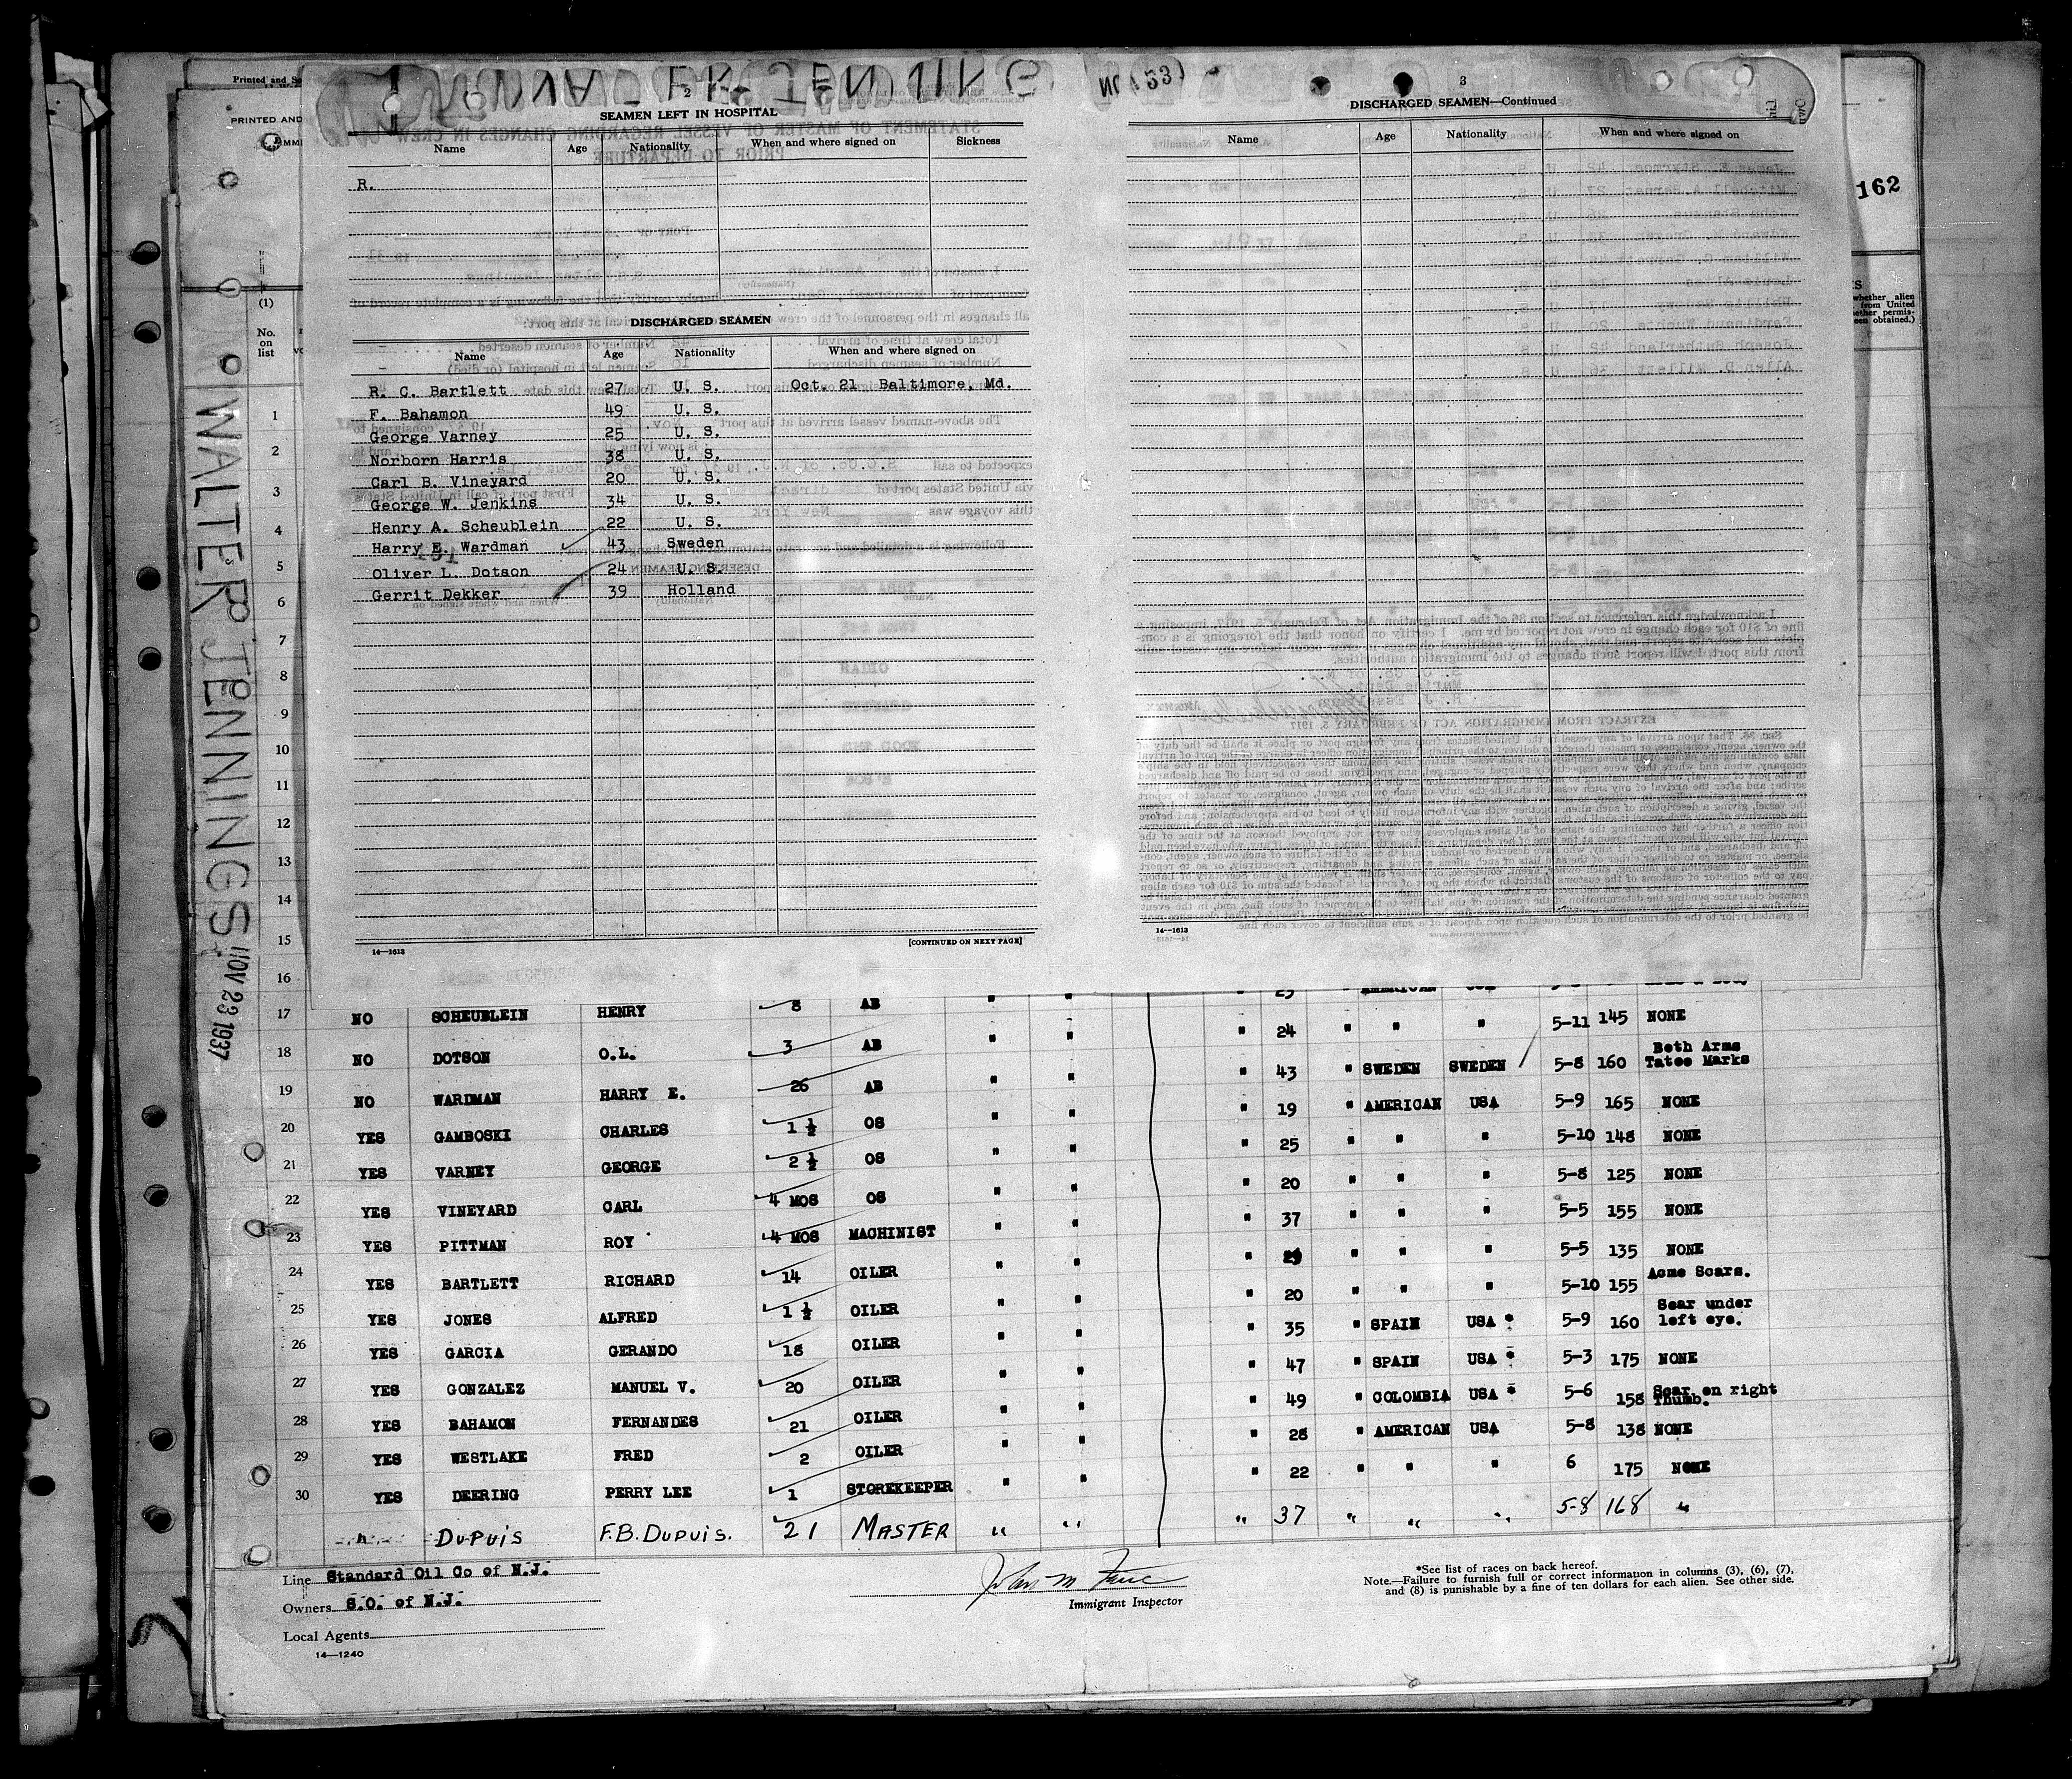 Printed and
PRINTED AND
162
2
SEAMEN LEFT IN HOSPITAL
Name Age Nationality When and where signed on Sickness
R.
DISCHARGED SEAMEN
Name Age Nationality When and where signed on
R. C. Bartlett 27 U. S. Oct. 21 Baltimore, Md.
F. Bahamon 49 U. S.
George Varney 25 U. S.
Norborn Harris 38 U. S.
Carl B. Vineyard 20 U. S.
George W. Jenkins 34 U. S.
Henry A. Scheublein 22 U. S.
Harry E. Wardman 43 Sweden
Oliver L. Dotson 24 U. S.
Gerrit Dekker 39 Holland
14—1613 [CONTINUED ON NEXT PAGE]
3
DISCHARGED SEAMEN—Continued
Name Age Nationality When and where signed on
14—1613
WALTER JENNINGS NOV 23 1937
(1)
No. on list
1
2
3
4
5
6
7
8
9
10
11
12
13
14
15
16
17 NO SCHEUBLEIN HENRY 8 AB " " " 23 " AMERICAN USA
18 NO DOTSON O.L. 3 AB " " " 24 " " " 5-11 145 NONE
19 NO WARDMAN HARRY E. 26 AB " " " 43 " SWEDEN SWEDEN 5-8 160 Both Arms Tatoo Marks
20 YES GAMBOSKI CHARLES 1 ½ OS " " " 19 " AMERICAN USA 5-9 165 NONE
21 YES VARNEY GEORGE 2 ½ OS " " " 25 " " " 5-10 148 NONE
22 YES VINEYARD CARL 4 MOS OS " " " 20 " " " 5-8 125 NONE
23 YES PITTMAN ROY 4 MOS MACHINIST " " " 37 " " " 5-5 155 NONE
24 YES BARTLETT RICHARD 14 OILER " " " " " " 5-5 135 NONE
25 YES JONES ALFRED 1 ½ OILER " " " 20 " " " 5-10 155 Acme Scars.
26 YES GARCIA GERANDO 18 OILER " " " 35 " SPAIN USA * 5-9 160 Scar under left eye.
27 YES GONZALEZ MANUEL V. 20 OILER " " " 47 " SPAIN USA * 5-3 175 NONE
28 YES BAHAMON FERNANDES 21 OILER " " " 49 " COLOMBIA USA * 5-6 158 Scar on right Thumb.
29 YES WESTLAKE FRED 2 OILER " " " 28 " AMERICAN USA 5-8 138 NONE
30 YES DEERING PERRY LEE 1 STOREKEEPER " " " 22 " " " 6 175 NONE
DUPUIS F.B. DUPUIS. 21 MASTER " " " 37 " " " 5-8 168 "
Line Standard Oil Co of N.J.
Owners S.O. of N.J.
Local Agents
14—1240
Immigrant Inspector
*See list of races on back hereof.
Note.—Failure to furnish full or correct information in columns (3), (6), (7),
and (8) is punishable by a fine of ten dollars for each alien. See other side.